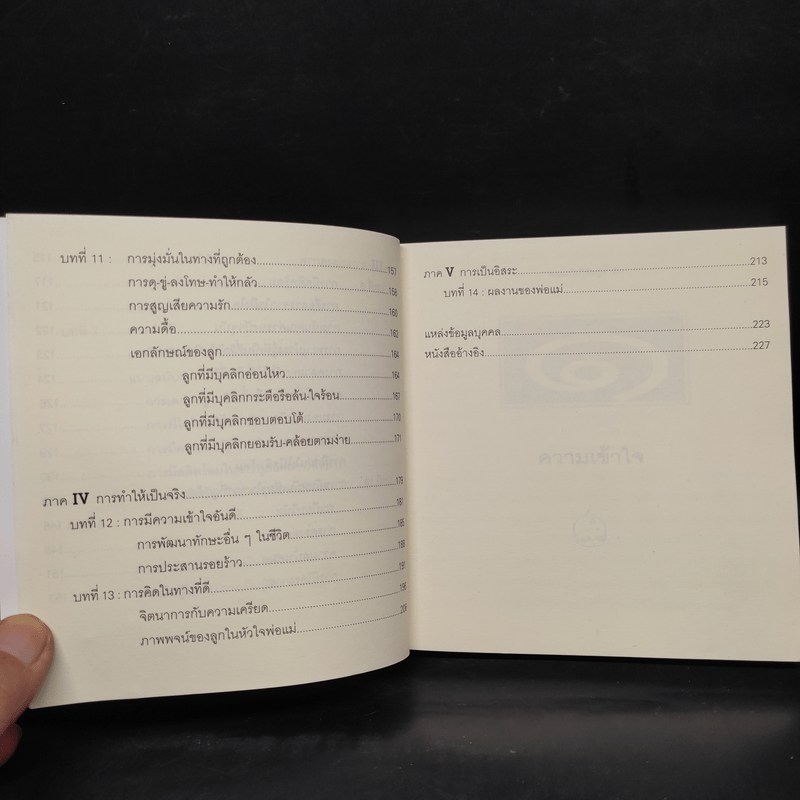 บทที่ 11 : การมุ่งมั่นในทางที่ถูกต้อง 157
การดุ-ขู่-ลงโทษ-ทำให้กลัว 158
การสูญเสียความรัก 160
ความดื้อ 162
เอกลักษณ์ของลูก 164
ลูกที่มีบุคลิกอ่อนไหว 164
ลูกที่มีบุคลิกกระตือรือล้น-ใจร้อน 167
ลูกที่มีบุคลิกชอบตอบโต้ 170
ลูกที่มีบุคลิกยอมรับ-คล้อยตามง่าย 171
ภาค IV การทำให้เป็นจริง 179
บทที่ 12 : การมีความเข้าใจอันดี 181
การพัฒนาทักษะอื่น ๆ ในชีวิต 185
การประสานรอยร้าว 189
บทที่ 13 : การคิดในทางที่ดี 191
จิตนาการกับความเครียด 196
ภาพพจน์ของลูกในหัวใจพ่อแม่ 208
ภาค V การเป็นอิสระ 213
บทที่ 14 : ผลงานของพ่อแม่ 215
แหล่งข้อมูลบุคคล 223
หนังสืออ้างอิง 227
ความเข้าใจ